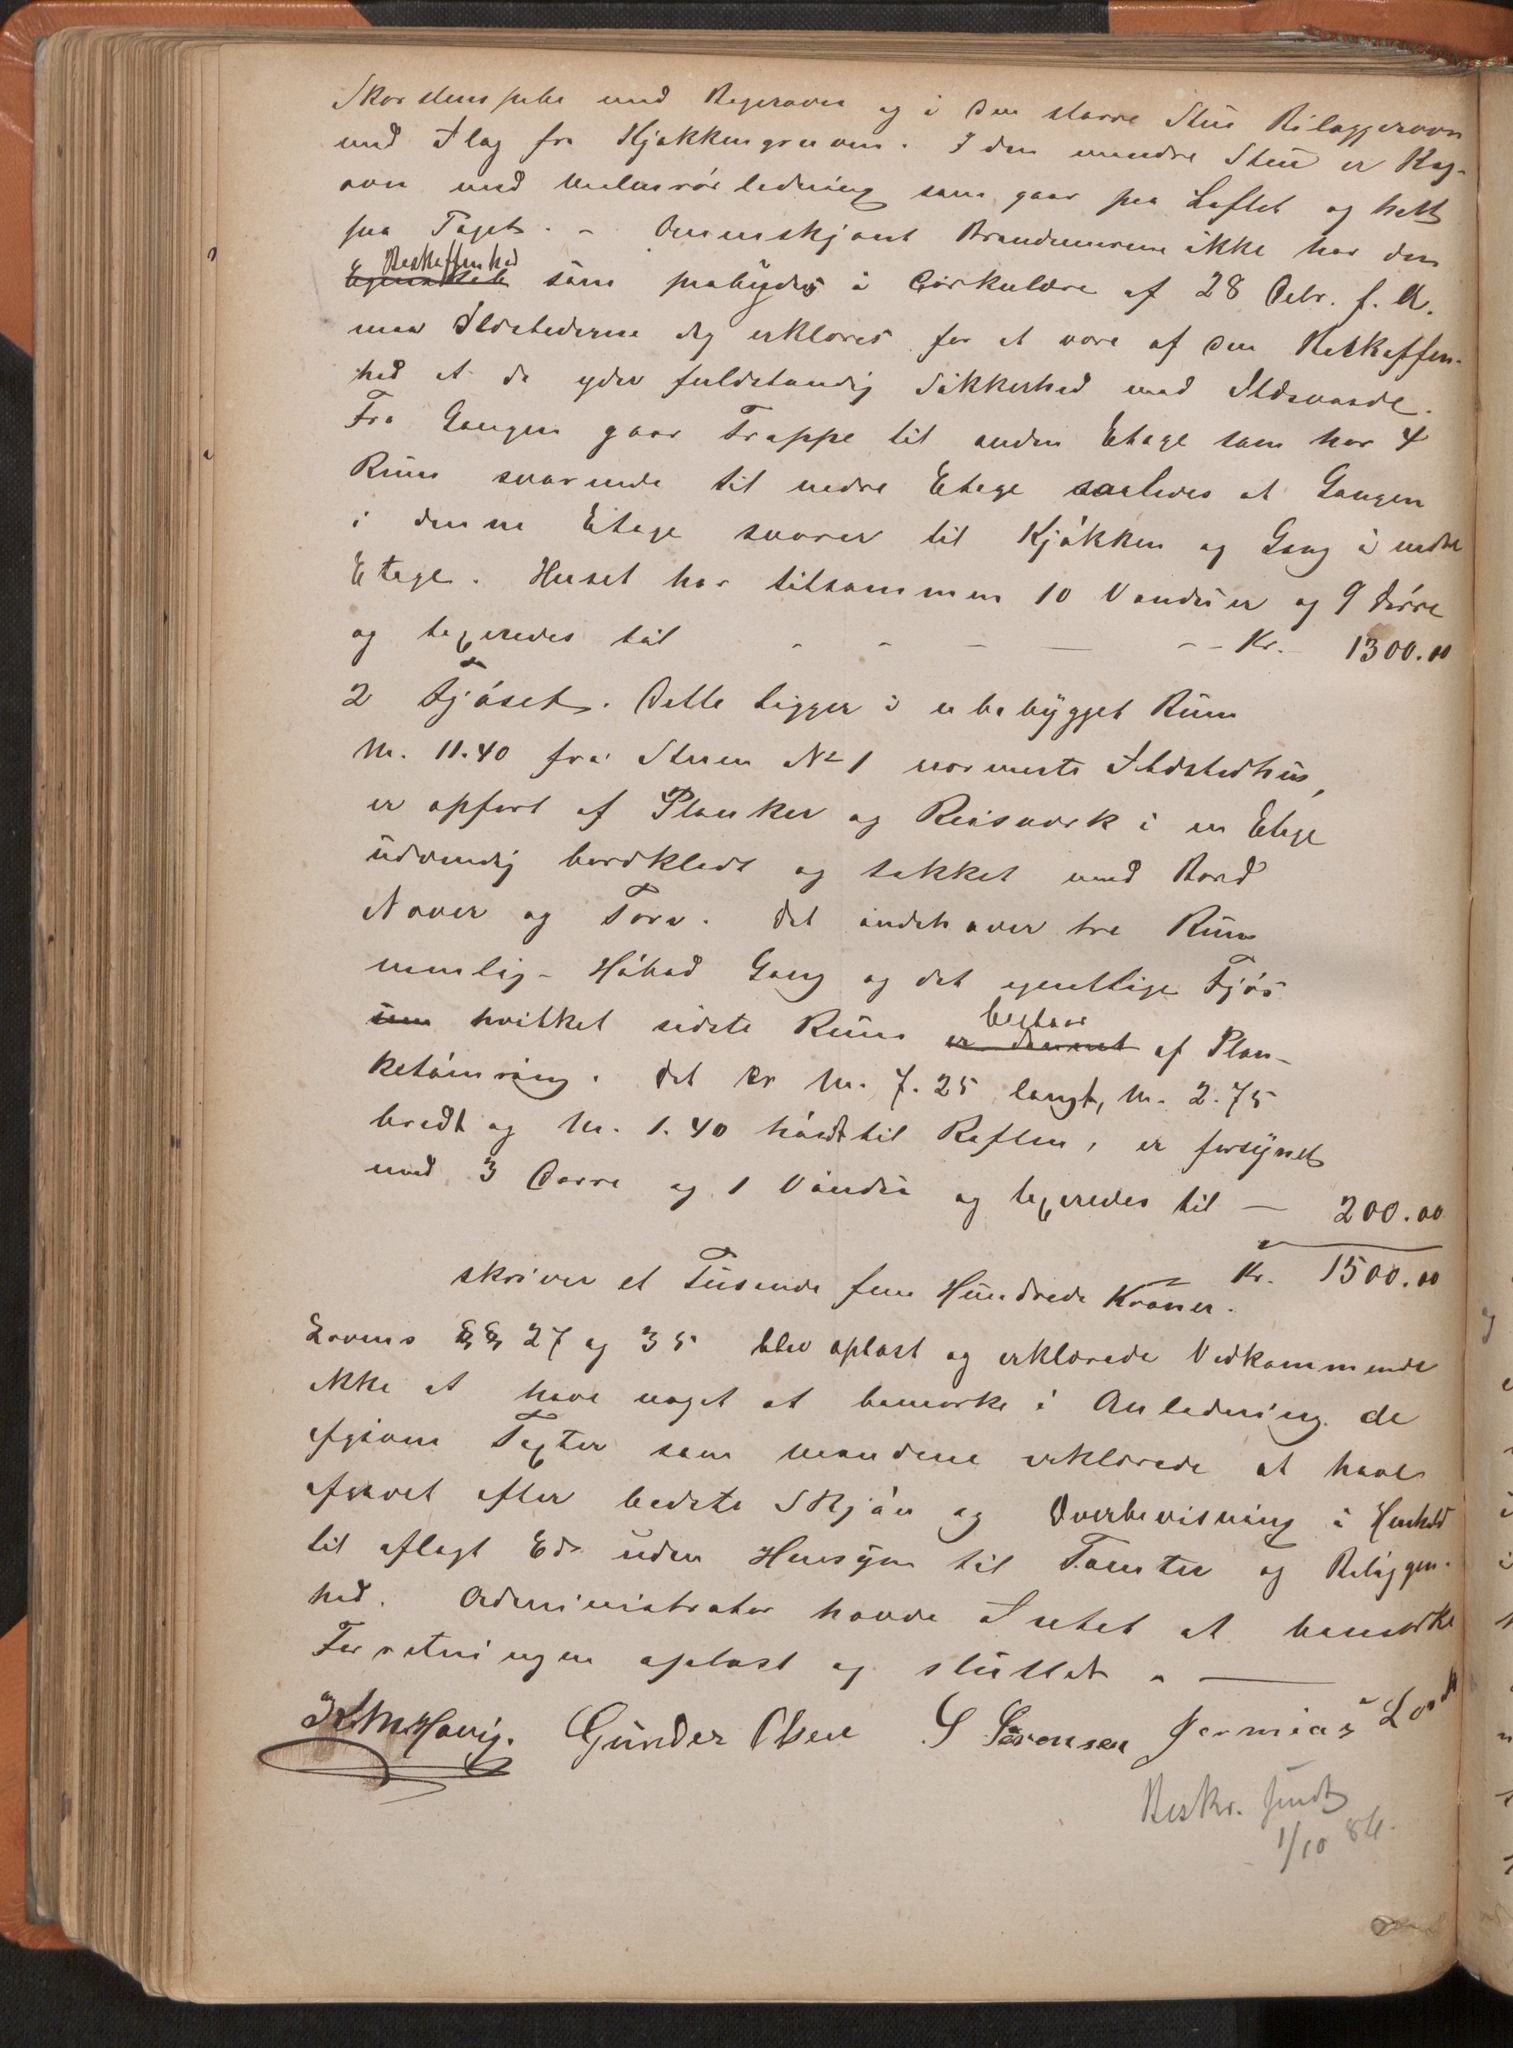 Skorstenspibe med Bagerovn og i den større Stue Bilæggerovn
med Ilæg fra Kjøkkengruven. I den mindre Stue er Kog-
ovn med rørledning som gaar paa Loftet og helt
paa Taget. – Omenskjønt Brandmurene ikke har den
Beskaffenhed
Egenskab som paabydes i Cirkulære af 28 Debr. f. A.
maa Ildstederne dog erklæres for at være af den Beskaffen-
hed at de yder fuldstændig Sikkerhed mod Ildsvaade.
Fra Gangen gaar Trappe til anden Etage som har 4
Rum svarende til nedre Etage saaledes at Gangen
i denne Etage svarer til Kjøkken og Gang i nedre
Etage. Huset har tilsammen 10 Vinduer og 9 Dørre
og taxeredes til - - - — - - Kr. 1300.00
2 Fjøset. Dette ligger i ubebygget Rum
M. 11.40 fra Stuen No 1 nærmeste Ildstedhus,
er opført af Planker og Reisværk i en Etage
udvendig bordklædt og tækket med Bord
Næver og Torv. Det indehaver tre Rum
nemlig - Høbod Gang og det egentlige Fjøs
som hvilket sidste Rum er dannet bestaar af Plan-
ketømring. Det er M. 7.25 langt, M. 2.75
bredt og M. 1.40 høidt til Raften, er forsynet
med 3 Dørre og 1 Vindu og taxeredes til — 200.00
Kr. 1500.00
skriver et Tusende fem Hundrede Kroner.
Lovens §§ 27 og 35 blev oplæst og erklærede Vedkommende
ikke at have noget at bemærke i Anledning de
afgivne Taxter som mændene erklærede at have
afgivet efter bedste Skjøn og Overbevisning i Henhold
til aflagt Ed uden Hensyn til Tomter og Beliggen-
hed. Administrator havde Intet at bemærke
Forretningen oplæst og sluttet. —
Hovig. Gunder Olsen S Sørensen Jermias
Beskr. sendt
1/10 86.